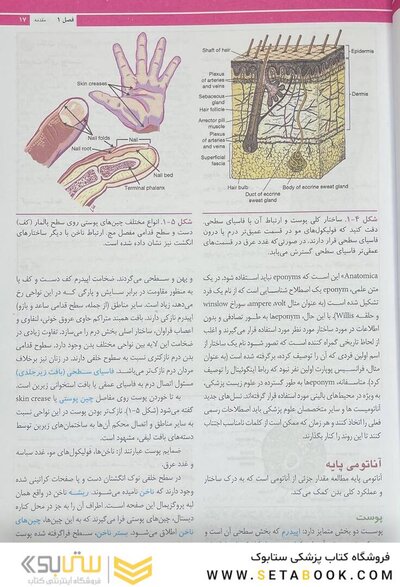 فصل ۱
مقدمه
۱۷
Skin creases
Nail folds
Nail
Nail root
Nail bed
Terminal phalanx
Shaft of hair
Epidermis
Plexus
of arteries
and veins
Sebaceous
gland
Dermis
Hair follicle
Arrector pili
muscle
Plexus
of arteries
and veins
Superficial
fascia
Hair bulb
Body of eccrine sweat gland
Duct of eccrine
sweat gland
شکل ۴-۱. ساختار کلی پوست و ارتباط آن با فاسیای سطحی.
دقت کنید که فولیکول‌های مو در قسمت عمیق‌تر درم یا درون
فاسیای سطحی قرار دارند، در صورتی‌که غدد عرق در قسمت‌های
عمقی‌تر فاسیای سطحی گسترش می‌یابد.
شکل ۵-۱. انواع مختلف چین‌های پوستی روی سطح پالمار (کف)
دست و سطح قدامی مفصل مچ. ارتباط ناخن با دیگر ساختارهای
انگشت نیز نشان داده شده است.
Anatomica» این است که eponyms نباید استفاده شود. در یک
متن علمی، eponym یک اصطلاح شناسایی است که از نام یک فرد
تشکیل شده است (به عنوان مثال ampere ،volt، سوراخ winslow
و حلقه Willis). با این حال، eponymها به طور تصادفی و بدون
اطلاعات در مورد ساختار مورد نظر مورد استفاده قرار می‌گیرند و اغلب
از لحاظ تاریخی گمراه کننده است که تصور شود نام یک ساختار از
اسم اولین فردی که آن را توصیف کرده، برگرفته شده است (به عنوان
مثال، فرانسیس پوپارت اولین نفر نبود که رباط اینگوئینال را توصیف
کرد). متأسفانه، eponymها به طور گسترده در علوم زیست پزشکی،
به ویژه در محیط‌های بالینی مورد استفاده قرار گرفته‌اند. نسل‌های جدید
آناتومیست‌ها و سایر متخصصان علوم پزشکی باید اصطلاحات رسمی
فعلی را اتخاذ کنند و هر زمان که ممکن است از کلمات نامناسب اجتناب
کنند تا این روند را کنار بگذارند.
آناتومی پایه
آناتومی پایه مطالعه مقدار جزئی از آناتومی است که به درک ساختار
و عملکرد کلی بدن کمک می‌کند.
پوست
پوست دو بخش متمایز دارد: اپیدرم که بخش سطحی آن است و
و پهن و سطحی می‌گردند. ضخامت اپیدرم کف دست و کف پا
به منظور مقاومت در برابر سایش و پارگی که در این نواحی رخ
می‌دهد، زیاد است. سایر مناطق (از جمله، سطح قدامی ساعد و بازو)
اپیدرم نازکی دارند. بافت همبند متراکم حاوی عروق خونی، لنفاوی و
اعصاب فراوان، ساختار اصلی بخش درم را می‌سازد. تفاوت زیادی در
ضخامت این لایه بین نواحی مختلف بدن وجود دارد. سطوح قدامی
بدن درم نازکتری نسبت به سطوح خلفی دارند. در زنان نیز برخلاف
مردان درم نازک‌تر می‌باشند. فاسیای سطحی (بافت زیرجلدی)
مسئول اتصال درم به فاسیای عمقی یا بافت استخوانی زیرین است.
به تا خوردن پوست روی مفاصل چین پوستی یا skin crease
گفته می‌شود (شکل ۵-۱). نازک‌تر بودن پوست در این نواحی نسبت
به سایر مناطق و اتصال محکم آن‌ها به ساختمان‌های زیرین توسط
دسته‌های بافت لیفی، مشهود است.
ضمایم پوست عبارتند از: ناخن‌ها، فولیکول‌های مو، غدد سباسه
و غدد عرق.
در سطح خلفی نوک انگشتان دست و پا صفحات کراتینی شده
وجود دارند که ناخن نامیده می‌شوند. ریشه ناخن در واقع همان
لبه پروگزیمال این صفحه است. اطراف آن را به جز در محل کناره
دیستال، چین‌های پوستی فرا می‌گیرند که به این چین‌ها، چین‌های
ناخن اطلاق می‌شود. بستر ناخن، سطح فراگرفته شده پوست
ستابوک
فروشگاه اینترنتی کتاب
فروشگاه کتاب پزشکی ستابوک
WWW.SETABOOK.COM